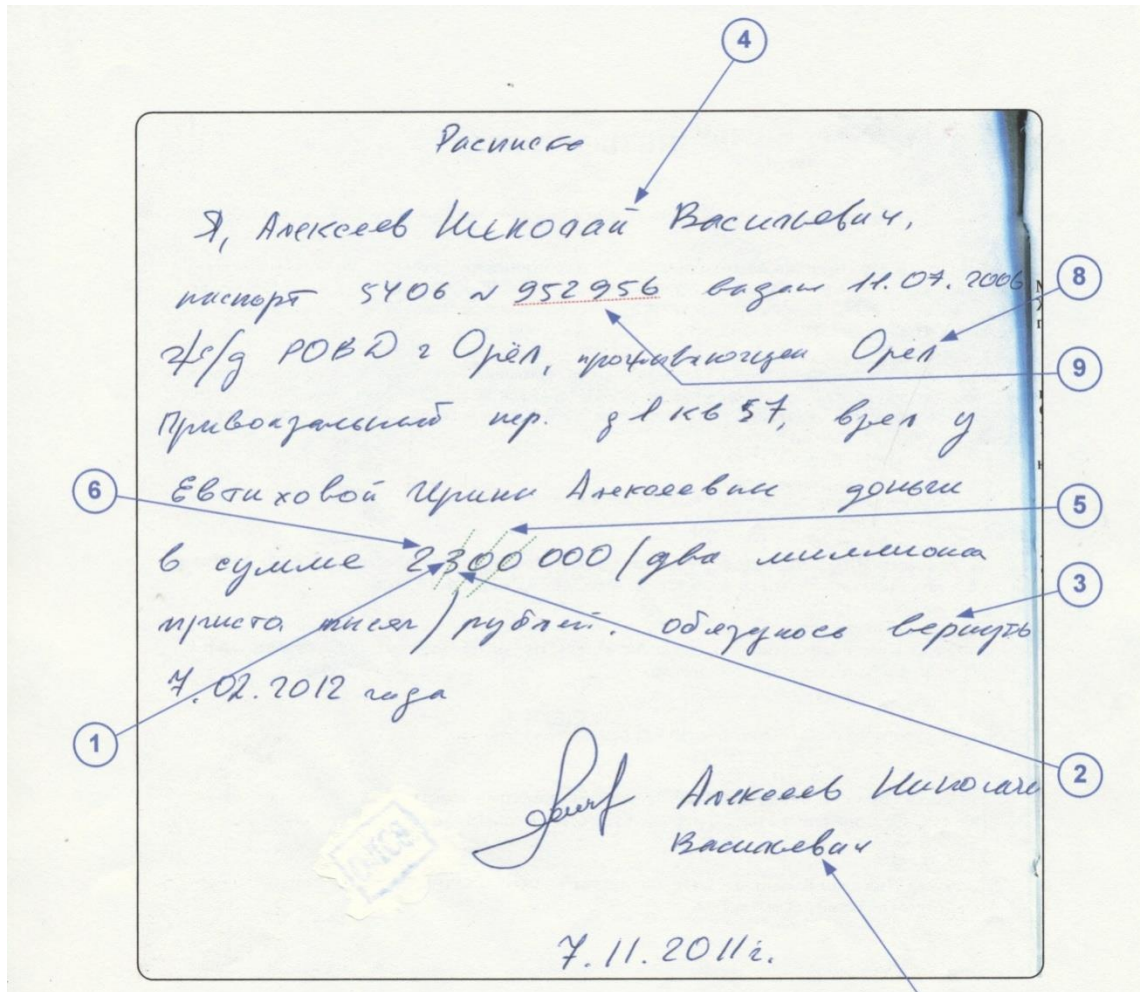 4
Расписка
Я, Алексеев Николай Васильевич,
8
паспорт 5406 N 952956 выдан 11.07.2006
Ж/д РОВД г Орёл, проживающий Орёл
9
Привокзальный пер. д 1 кв 57, взял у
6
Евтиховой Ирины Алексеевны деньги
5
в сумме 2300 000 / два миллиона
3
триста тысяч / рублей. обязуюсь вернуть
7.02.2012 года
1
2
Алексеев Николай
Васильевич
7.11.2011г.